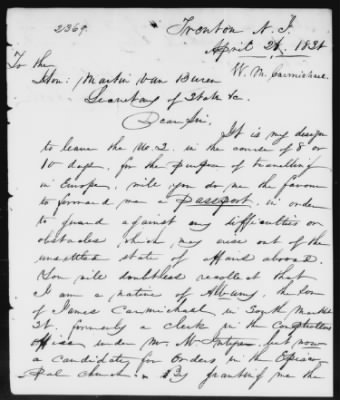 2369.
Trenton N.J.
April 21, 1831
To the
W. M. Carmichael.
Hon: Martin Van Buren
Secretary of State &c.
Dear Sir.
It is my design
to leave the U.S. in the course of 8 or
10 days, for the purpose of travelling
in Europe, will you do me the favour
to forward me a Passport, in order
to guard against any difficulties or
obstacles which may arise out of the
unsettled state of affairs abroad.
You will doubtless recollect that
I am a native of Albany, the son
of James Carmichael in South Market
St. formerly a clerk in the Comptrollers
office under Mr. McIntyre. but now
a candidate for Orders in the Episco-
pal church. By granting me the